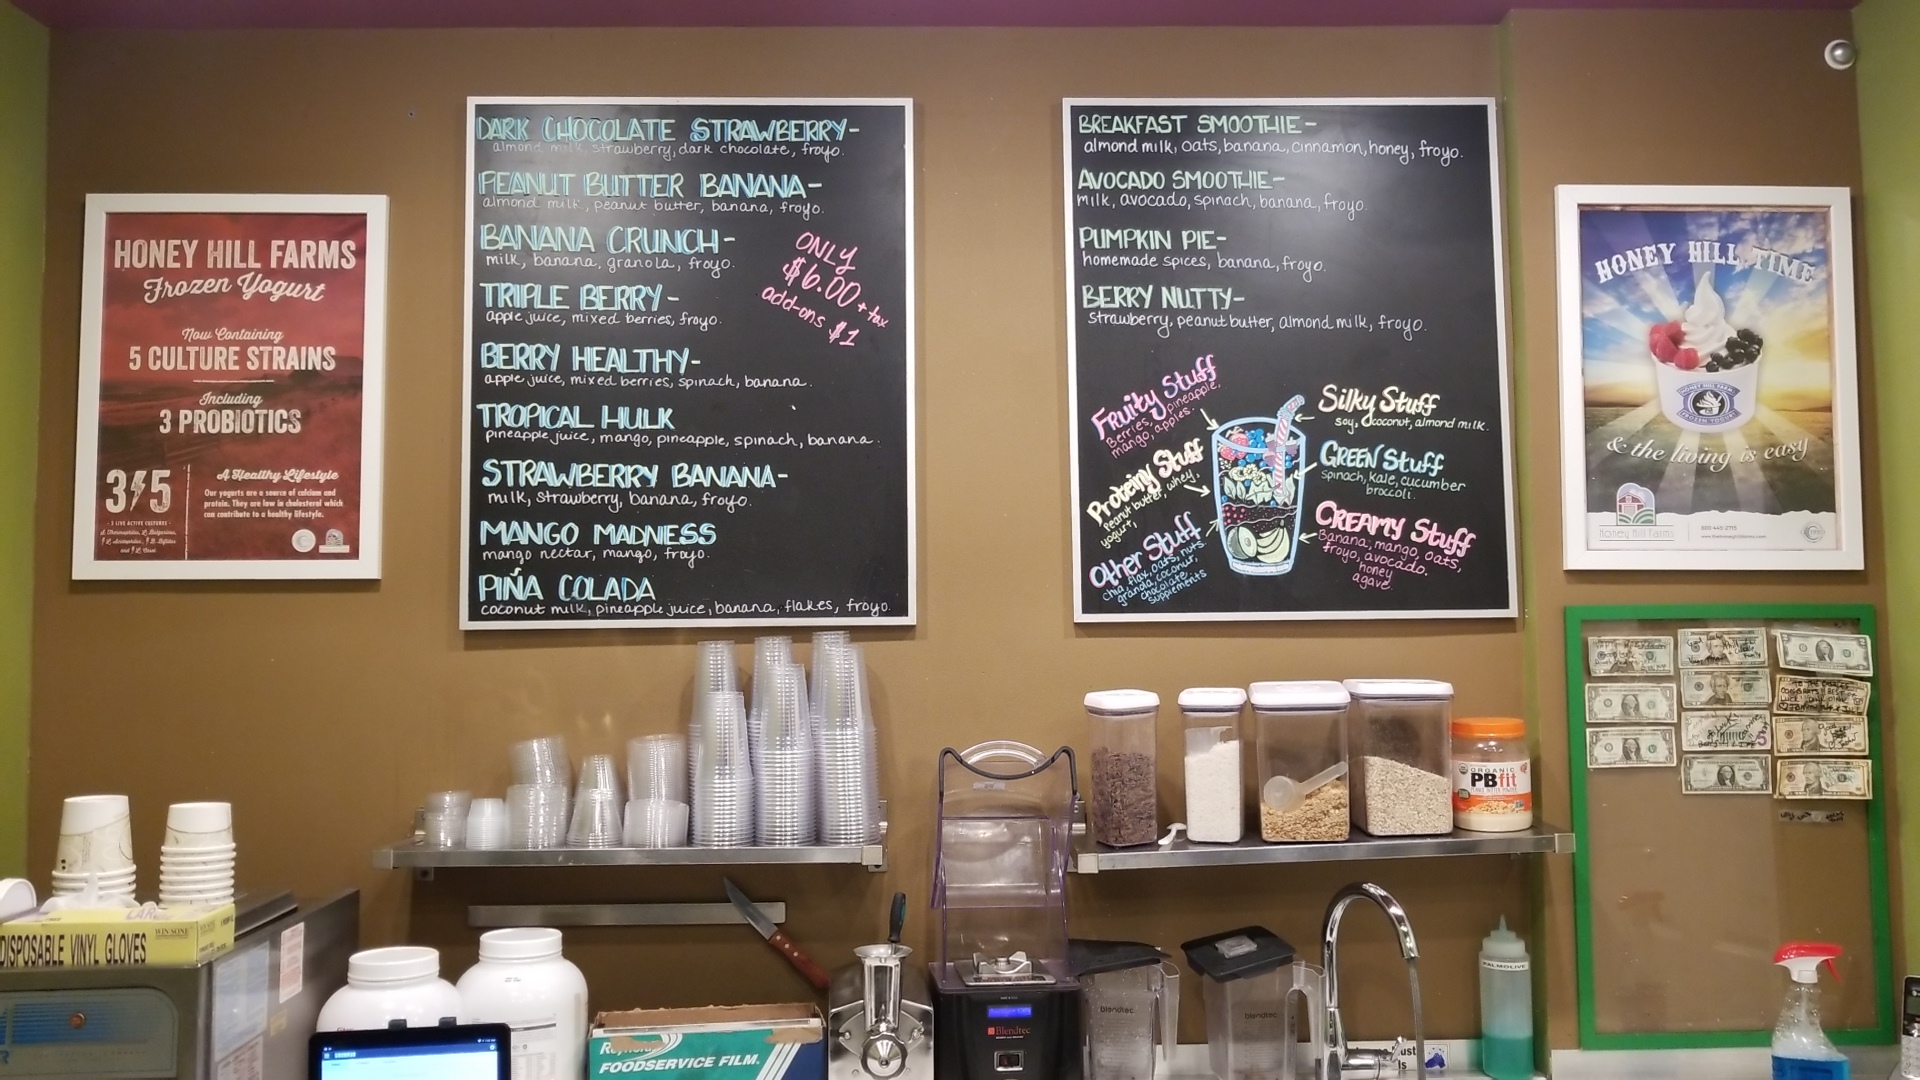 HONEY HILL FARMS
Frozen Yogurt
Now Containing
5 CULTURE STRAINS
Including
3 PROBIOTICS
3 5
A Healthy Lifestyle
Our yogurts are a source of calcium and
protein. They are low in cholesterol which
can contribute to a healthy lifestyle.
DARK CHOCOLATE STRAWBERRY-
almond milk, strawberry, dark chocolate, froyo.
PEANUT BUTTER BANANA-
almond milk, peanut butter, banana, froyo.
BANANA CRUNCH-
milk, banana, granola, froyo.
TRIPLE BERRY-
apple juice, mixed berries, froyo.
BERRY HEALTHY-
apple juice, mixed berries, spinach, banana.
TROPICAL HULK
pineapple juice, mango, pineapple, spinach, banana.
STRAWBERRY BANANA-
milk, strawberry, banana, froyo.
MANGO MADNESS
mango nectar, mango, froyo.
PIÑA COLADA
coconut milk, pineapple juice, banana, flakes, froyo.
ONLY
$6.00 + tax
add-ons $1
BREAKFAST SMOOTHIE-
almond milk, oats, banana, cinnamon, honey, froyo.
AVOCADO SMOOTHIE-
milk, avocado, spinach, banana, froyo.
PUMPKIN PIE-
homemade spices, banana, froyo.
BERRY NUTTY-
strawberry, peanut butter, almond milk, froyo.
Fruity Stuff
Berries, pineapple,
mango, apples.
Proteiny Stuff
Peanut butter, whey,
yogurt,
Other Stuff
chia, flax, oats, nuts,
granola, coconut,
chocolate,
supplements
Silky Stuff
soy, coconut, almond milk.
GREEN Stuff
spinach, kale, cucumber
broccoli.
CREAMY Stuff
Banana, mango, oats,
froyo, avocado.
honey
agave.
HONEY HILL TIME
& the living is easy
Honey Hill Farms
ORGANIC
PBfit
DISPOSABLE VINYL GLOVES
FOODSERVICE FILM.
Blendtec
blendtec
blendtec
PALMOLIVE